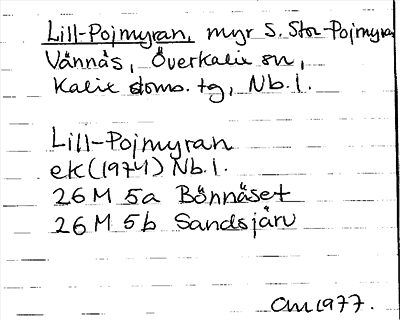 Lill-Pojmyran, myr S. Stor-Pojmyran
Vännäs, Överkalix sn,
Kalix doms. tg, Nb.l.
Lill-Pojmyran
ek (1974) Nb.l.
26 M 5a Bönnäset
26 M 5b Sandsjärv
CM 1977.